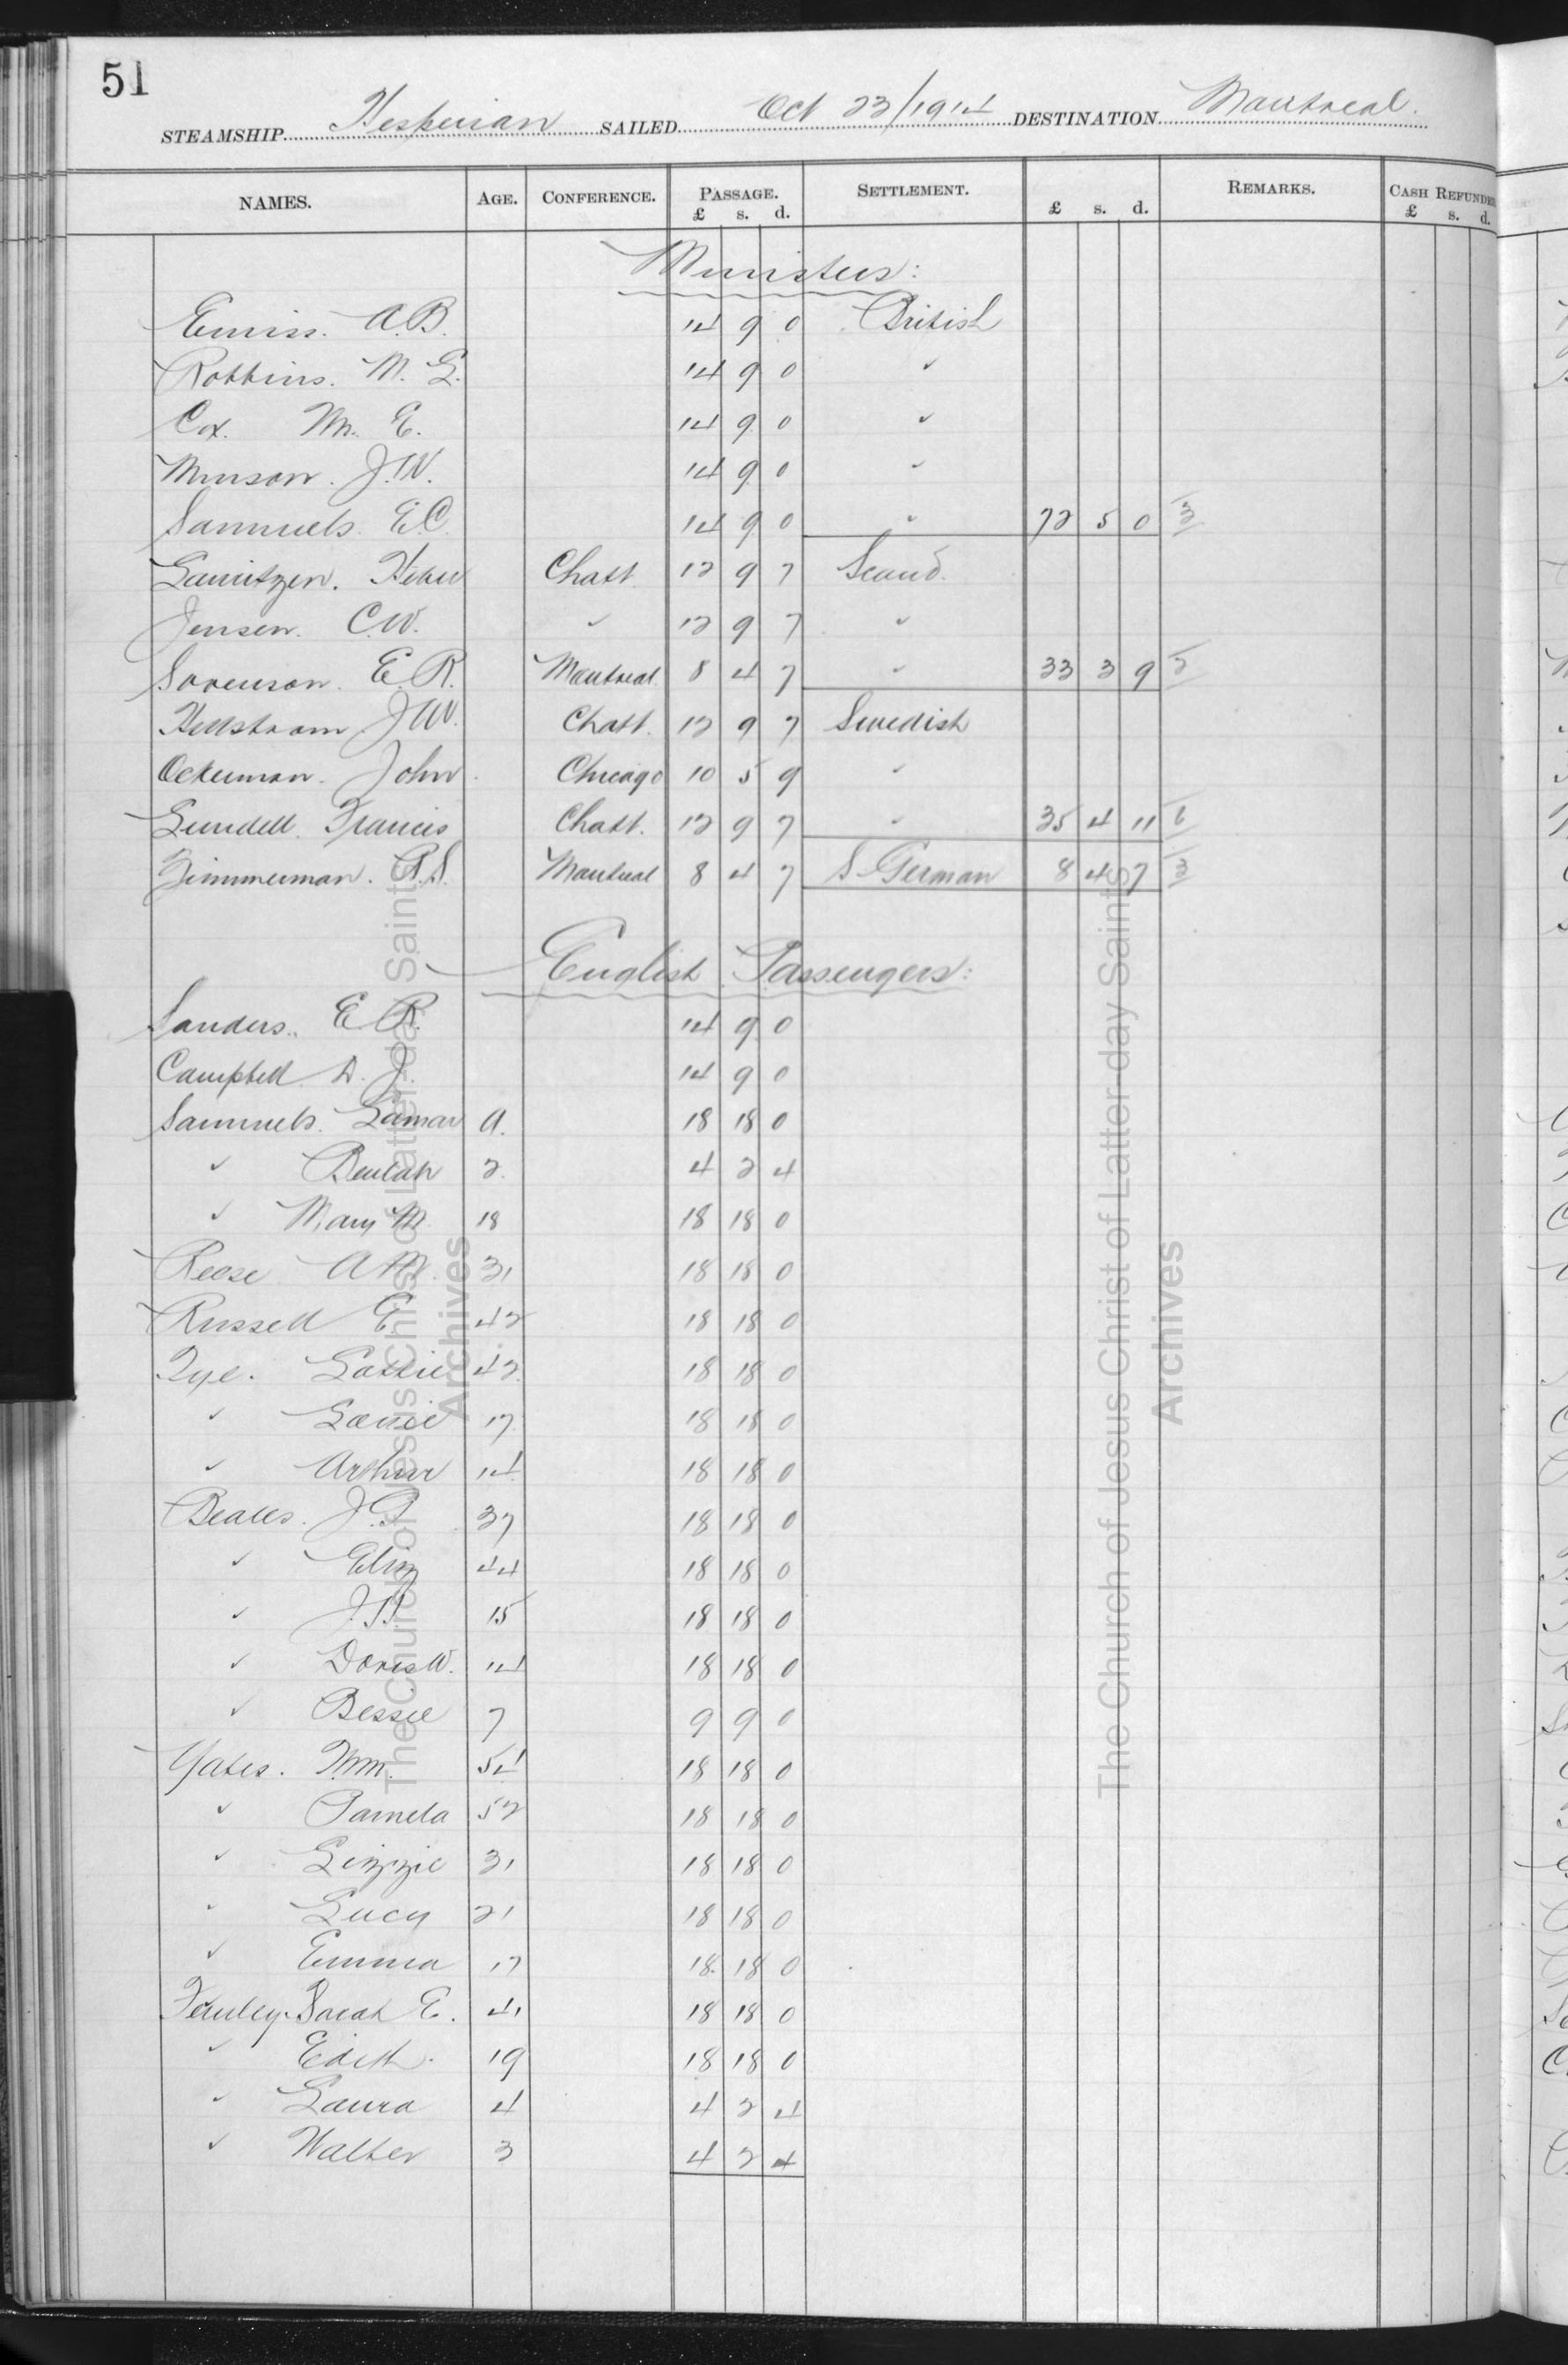 51
STEAMSHIP Hesperian SAILED Oct 23/1914 DESTINATION Montreal.
NAMES. AGE. CONFERENCE. PASSAGE. £ s. d. SETTLEMENT. £ s. d. REMARKS. CASH REFUNDED £ s. d.
Ministers:
A.B. 14 9 0 British
Robbins. M. G. 14 9 0 "
Cox. M. E. 14 9 0 "
Munson. J.W. 14 9 0 "
Samuels. E.C. 14 9 0 " 72 5 0 3
Lauritzen. Heber Chatt 12 9 7 Scand.
Jensen. C.W. " 12 9 7 "
Sorenson. E.R. Montreal 8 4 7 " 33 3 9
Hellstrom J.W. Chatt. 12 9 7 Swedish
Ockerman. John Chicago 10 5 9 "
Lundell. Francis Chatt. 12 9 7 " 35 4 11
Zimmerman. Montreal 8 4 7 S German 8 4 7 3
English Passengers:
Sanders. E R. 14 9 0
Campbell D. J. 14 9 0
Samuels. Lamar A. 18 18 0
" Beulah 2 4 2 4
" Mary M. 18 18 18 0
Reese A M. 31 18 18 0
Russell E. 42 18 18 0
Tye. Lottie 42 18 18 0
" 17 18 18 0
" Arthur 14 18 18 0
Beales. J.P. 37 18 18 0
" Eliz 44 18 18 0
" 15 18 18 0
" Doris W. 14 18 18 0
" Bessie 7 9 9 0
Yates. Wm. 54 18 18 0
" Pamela 52 18 18 0
" Lizzie 31 18 18 0
" Lucy 21 18 18 0
" Emma 17 18 18 0
Sarah E. 41 18 18 0
" Edith. 19 18 18 0
" Laura 4 4 2 4
" Walter 3 4 2 4
The Church of Jesus Christ of Latter-day Saints
Archives
The Church of Jesus Christ of Latter-day Saints
Archives